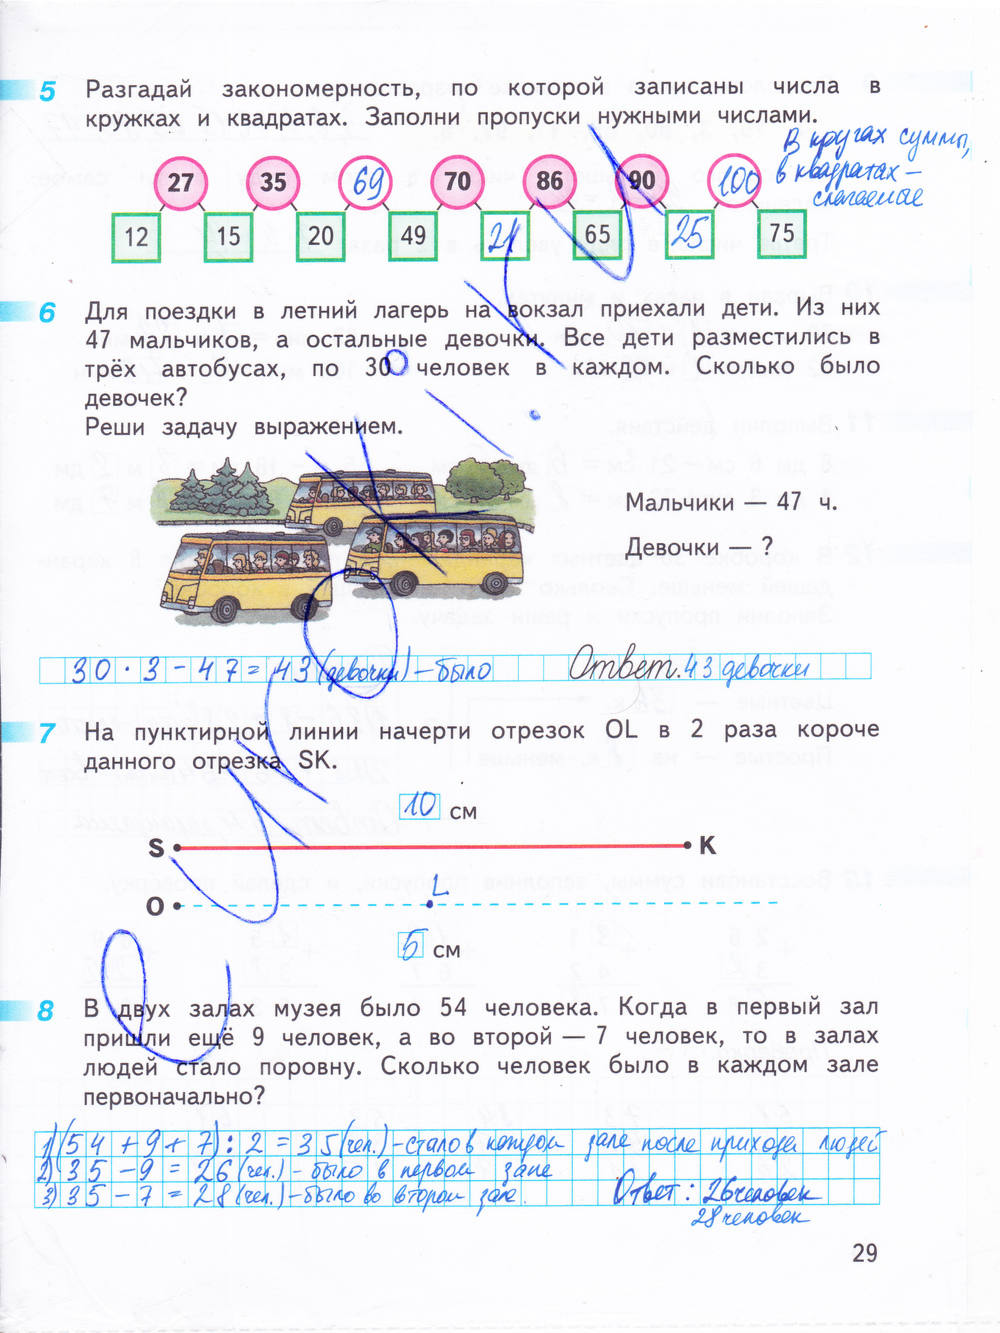 5 Разгадай закономерность, по которой записаны числа в
кружках и квадратах. Заполни пропуски нужными числами.
В кругах суммы,
в квадратах –
слагаемые
27 35 69 70 86 90 100
12 15 20 49 21 65 25 75
6 Для поездки в летний лагерь на вокзал приехали дети. Из них
47 мальчиков, а остальные девочки. Все дети разместились в
трёх автобусах, по 30 человек в каждом. Сколько было
девочек?
Реши задачу выражением.
Мальчики — 47 ч.
Девочки — ?
30 · 3 – 47 = 43 (девочки) – было Ответ. 43 девочки
7 На пунктирной линии начерти отрезок OL в 2 раза короче
данного отрезка SK.
10 см
S K
L
O
5 см
8 В двух залах музея было 54 человека. Когда в первый зал
пришли ещё 9 человек, а во второй — 7 человек, то в залах
людей стало поровну. Сколько человек было в каждом зале
первоначально?
1) (54 + 9 + 7) : 2 = 35 (чел.) – стало в каждом зале после прихода людей
2) 35 – 9 = 26 (чел.) – было в первом зале
3) 35 – 7 = 28 (чел.) – было во втором зале. Ответ: 26 человек
28 человек
29